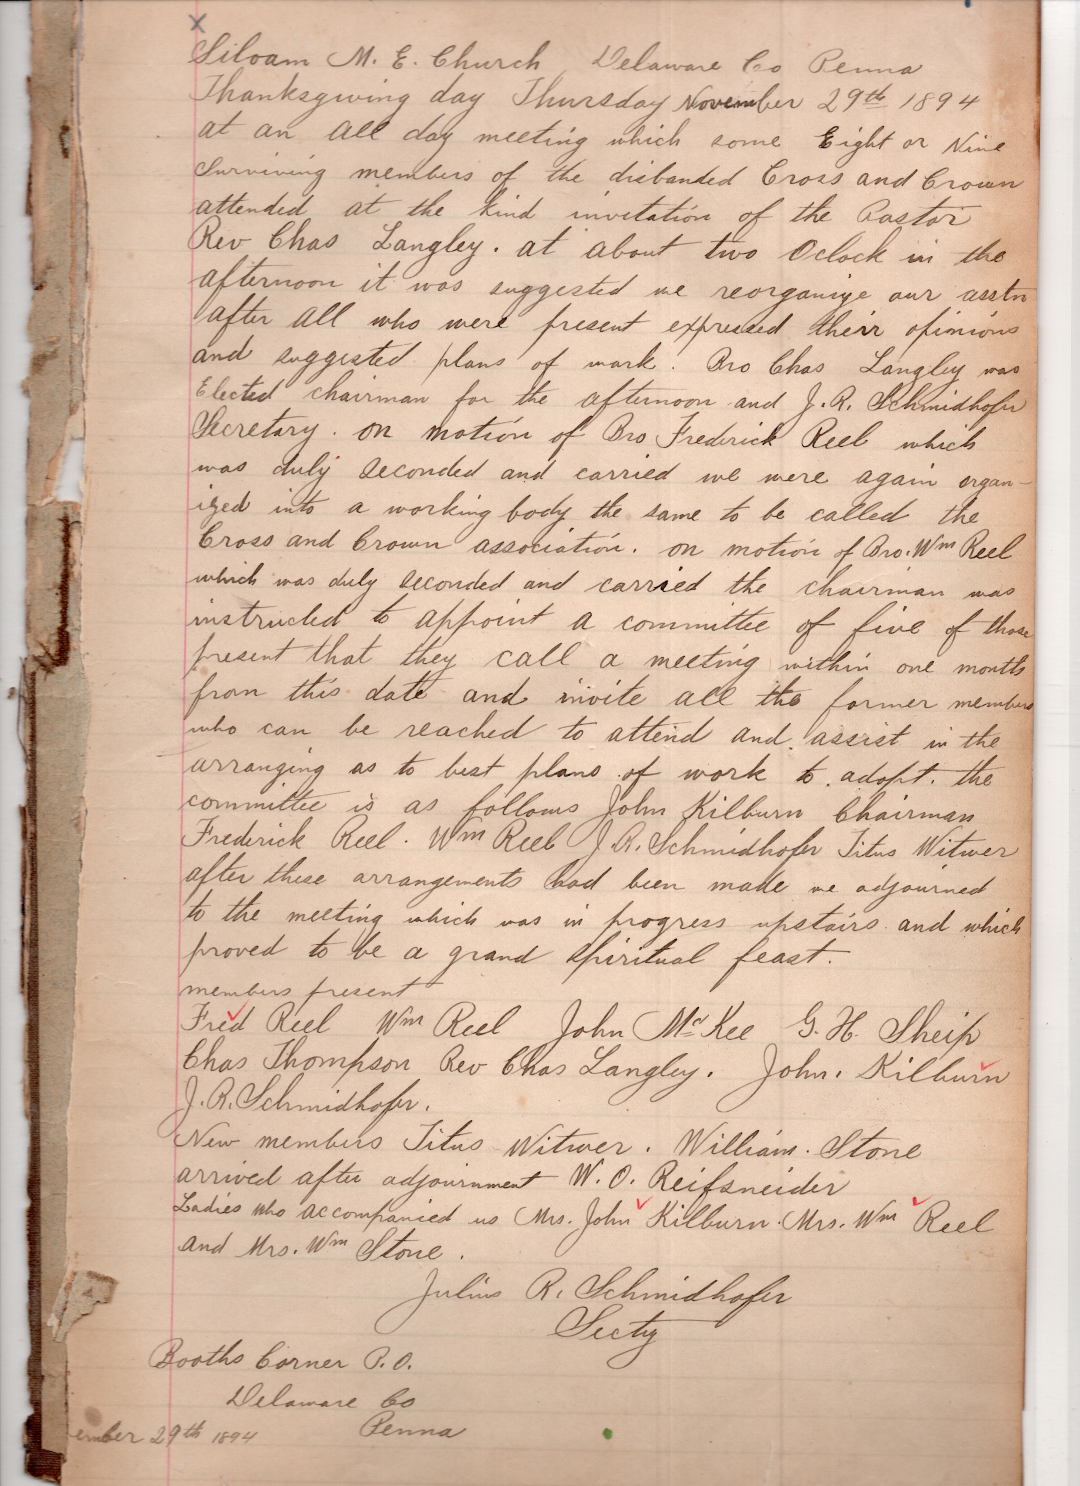 x
Siloam M. E. Church Delaware Co Penna
Thanksgiving day Thursday November 29th 1894
at an all day meeting which some Eight or Nine
surviving members of the disbanded Cross and Crown
attended at the kind invitation of the Pastor
Rev Chas Langley. at about two Oclock in the
afternoon it was suggested we reorganize our asstn
after all who were present expressed their opinions
and suggested plans of work. Bro Chas Langley was
Elected chairman for the afternoon and J. R. Schmidhofer
Secretary. on motion of Bro Frederick Reel which
was duly seconded and carried we were again organ-
ized into a working body the same to be called the
Cross and Crown association. on motion of Bro. Wm Reel
which was duly seconded and carried the chairman was
instructed to appoint a committee of five of those
present that they call a meeting within one month
from this date and invite all the former members
who can be reached to attend and assist in the
arranging as to best plans of work to adopt. the
committee is as follows John Kilburn Chairman
Frederick Reel. Wm Reel J. R. Schmidhofer Titus Witwer
after these arrangements had been made we adjourned
to the meeting which was in progress upstairs and which
proved to be a grand spiritual feast.
members present
Fred Reel Wm Reel John McKee G. H. Sheip
Chas Thompson Rev Chas Langley. John. Kilburn
J. R. Schmidhofer.
New members Titus Witwer. William. Stone
arrived after adjournment W. O. Reifsneider
Ladies who accompanied us Mrs. John Kilburn. Mrs. Wm Reel
and Mrs. Wm Stone.
Julius R. Schmidhofer
Secty
Booths Corner P. O.
Delaware Co
Penna
ember 29th 1894